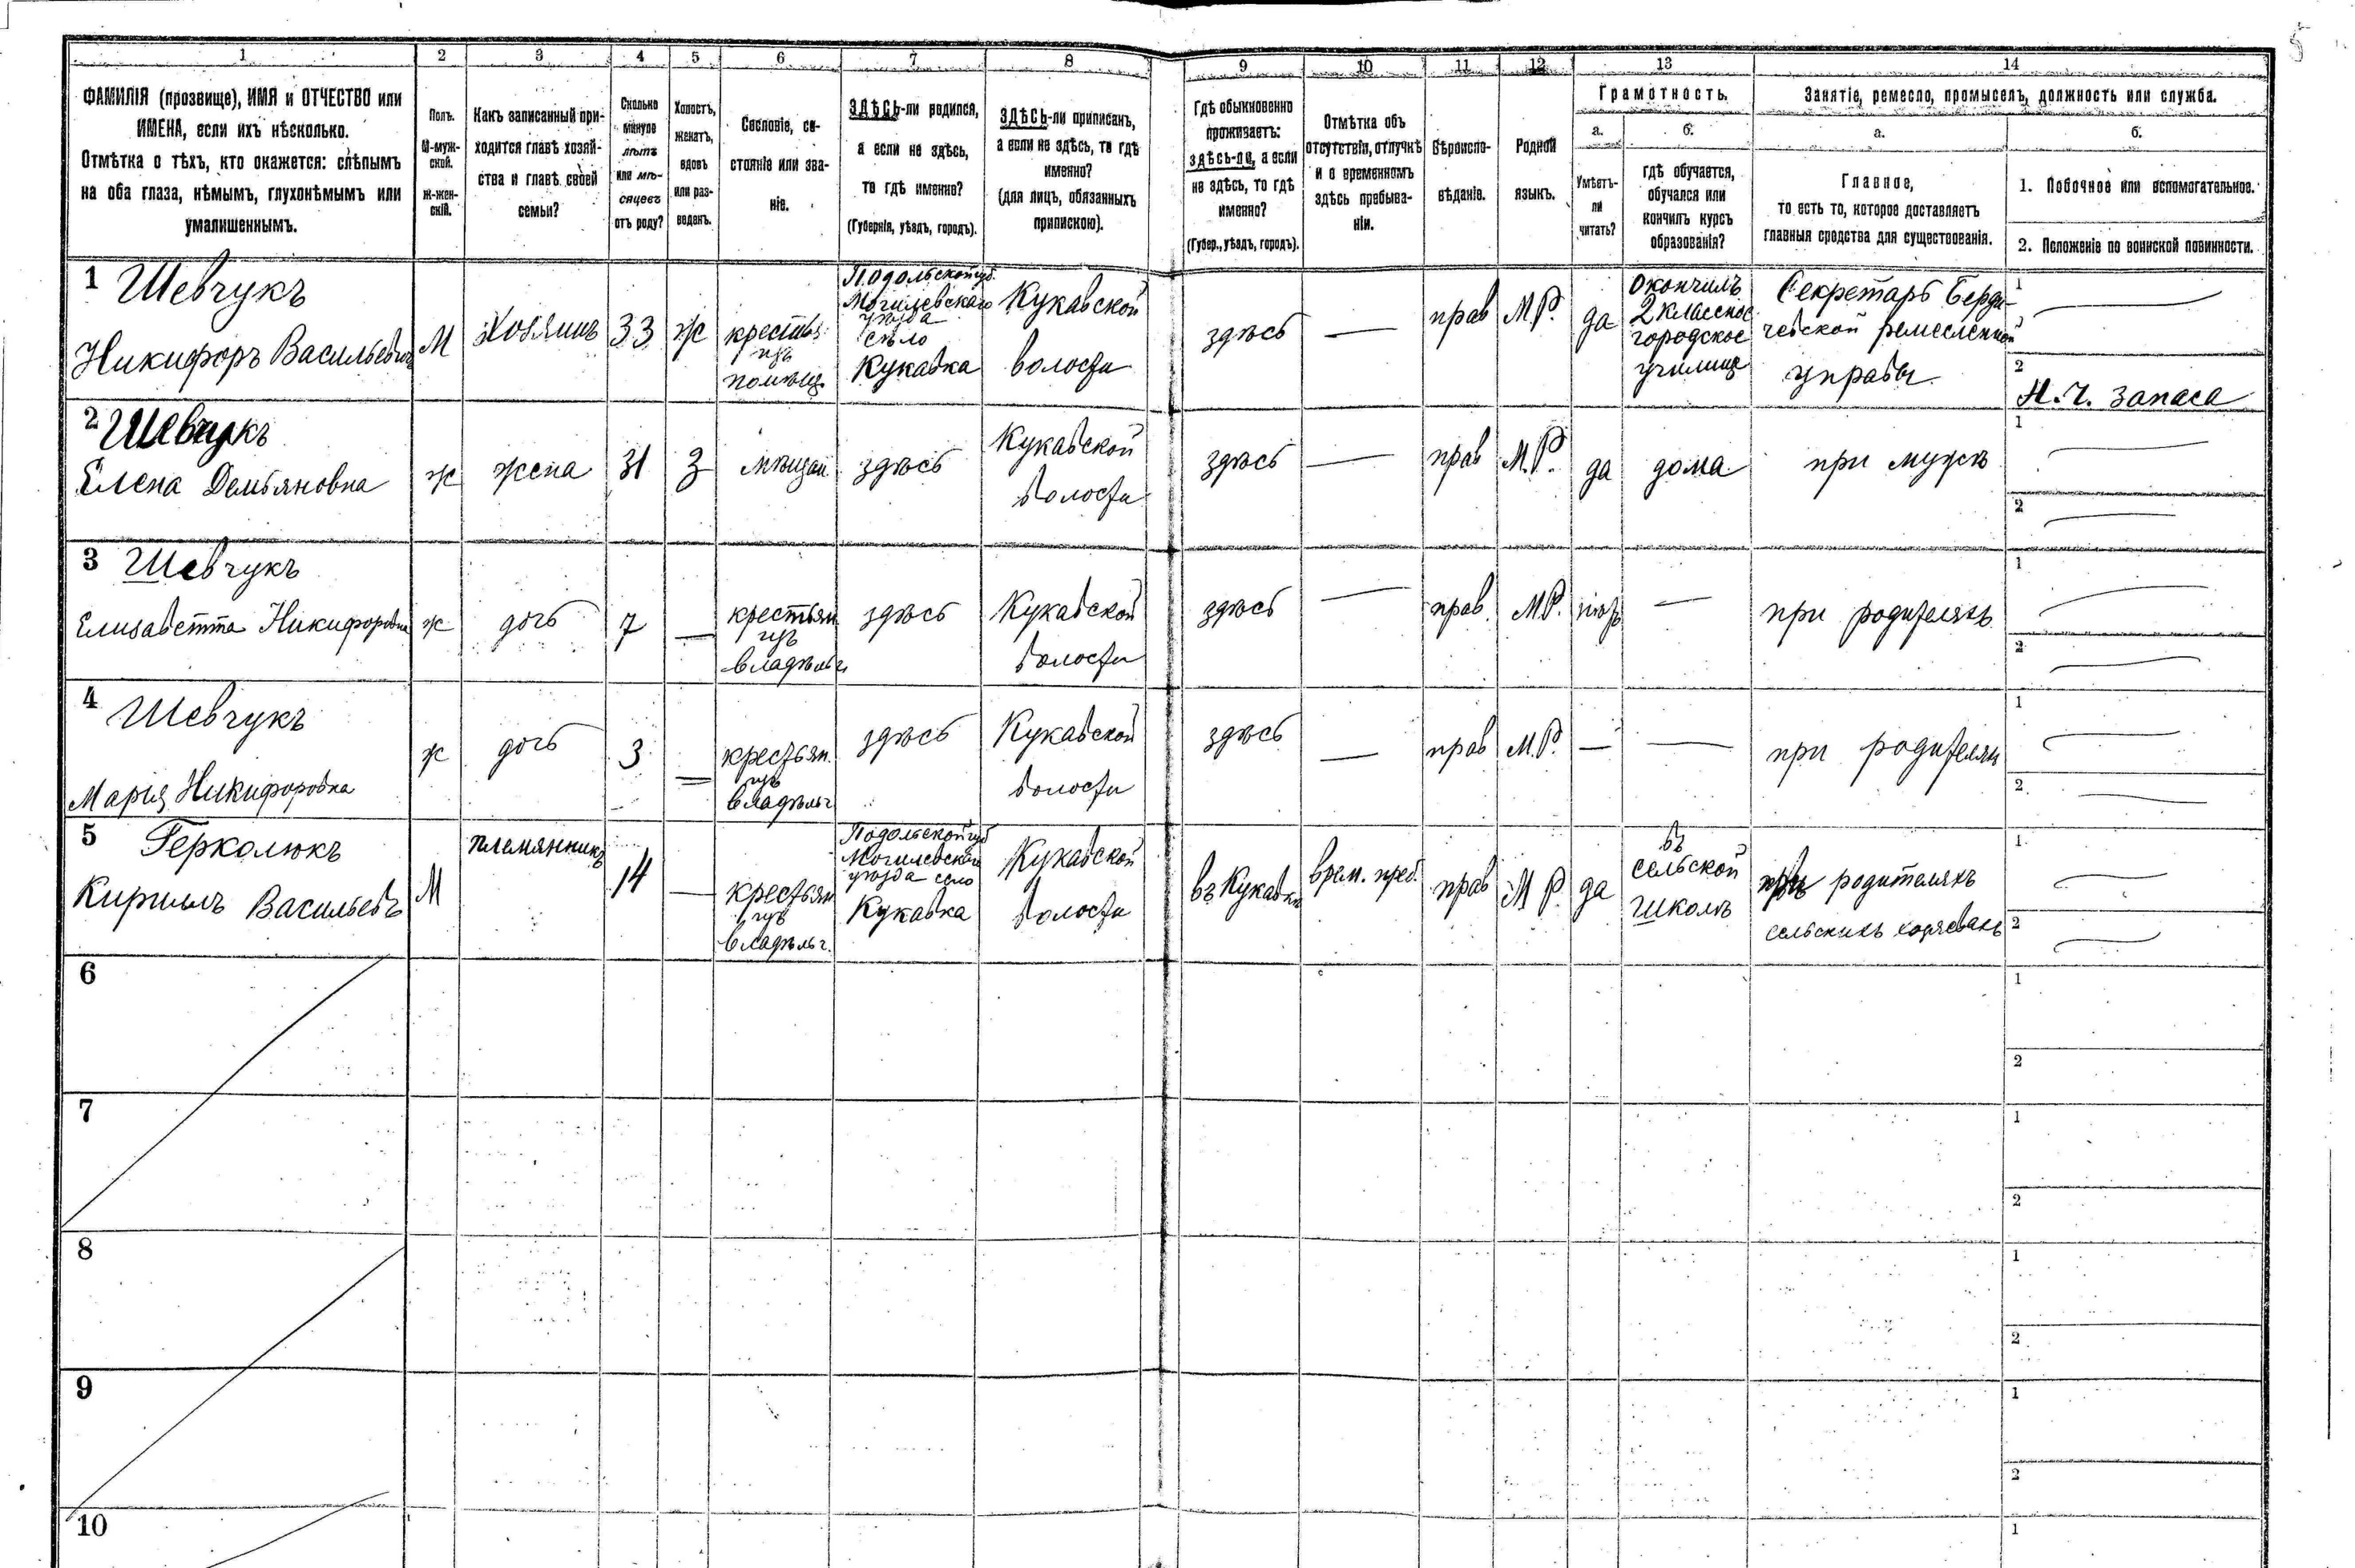 5
1 2 3 4 5 6 7 8 9 10 11 12 13 14
ФАМИЛІЯ (прозвище), ИМЯ и ОТЧЕСТВО или
ИМЕНА, если ихъ нѣсколько.
Отмѣтка о тѣхъ, кто окажется: слѣпымъ
на оба глаза, нѣмымъ, глухонѣмымъ или
умалишеннымъ.
Полъ.
М-муж-
ской.
Ж-жен-
скій.
Какъ записанный при-
ходится главѣ хозяй-
ства и главѣ своей
семьи?
Сколько
минуло
лѣтъ
или мѣ-
сяцевъ
отъ роду?
Холостъ,
женатъ,
вдовъ
или раз-
веденъ.
Сословіе, со-
стояніе или зва-
ніе.
ЗДѢСЬ-ли родился,
а если не здѣсь,
то гдѣ именно?
(Губернія, уѣздъ, городъ).
ЗДѢСЬ-ли приписанъ,
а если не здѣсь, то гдѣ
именно?
(для лицъ, обязанныхъ
припискою).
Гдѣ обыкновенно
проживаетъ:
здѣсь-ли, а если
не здѣсь, то гдѣ
именно?
(Губер., уѣздъ, городъ).
Отмѣтка объ
отсутствіи, отлучкѣ
и о временномъ
здѣсь пребыва-
ніи.
Вѣроиспо-
вѣданіе.
Родной
языкъ.
Грамотность.
а.
Умѣетъ-
ли
читать?
б.
гдѣ обучается,
обучался или
кончилъ курсъ
образованія?
Занятіе, ремесло, промыселъ, должность или служба.
а.
Главное,
то есть то, которое доставляетъ
главныя средства для существованія.
б.
1. Побочное или вспомогательное.
2. Положеніе по воинской повинности.
1 Шевчукъ
Никифоръ Васильевичъ
М
Хозяинъ
33
ж
крестья
изъ
помѣщ.
Подольской губ.
Могилевскаго
уѣзда
село
Кукавка
Кукавской
волости
здѣсь
—
прав
М.Р.
да
Окончилъ
2 классное
городское
училище
Секретарь Берди-
чевской ремесленной
управы
1
2
Н.Ч. запаса
2 Шевчукъ
Елена Демьяновна
ж
жена
31
З
мѣщан.
здѣсь
Кукавской
волости
здѣсь
—
прав
М.Р.
да
дома
при мужѣ
1
2
3 Шевчукъ
Елизаветта Никифоровна
ж
дочь
7
—
крестьян
изъ
владѣльч.
здѣсь
Кукавской
волости
здѣсь
—
прав.
М.Р.
нѣтъ
—
при родителяхъ
1
2
4 Шевчукъ
Мария Никифоровна
ж
дочь
3
—
крестьян.
изъ
владѣльч
здѣсь
Кукавской
волости
здѣсь
—
прав
М.Р.
—
—
при родителях
1
2
5 Герколюкъ
Кириллъ Васильевъ
М
племянникъ
14
—
крестьян
изъ
владѣльч.
Подольской губ
Могилевскаго
уѣзда село
Кукавка
Кукавской
волости
въ Кукавкѣ
врем. преб.
прав
М.Р.
да
въ
сельской
школѣ
при родителяхъ
сельскихъ хозяевахъ
1
2
6
1
2
7
1
2
8
1
2
9
1
2
10
1